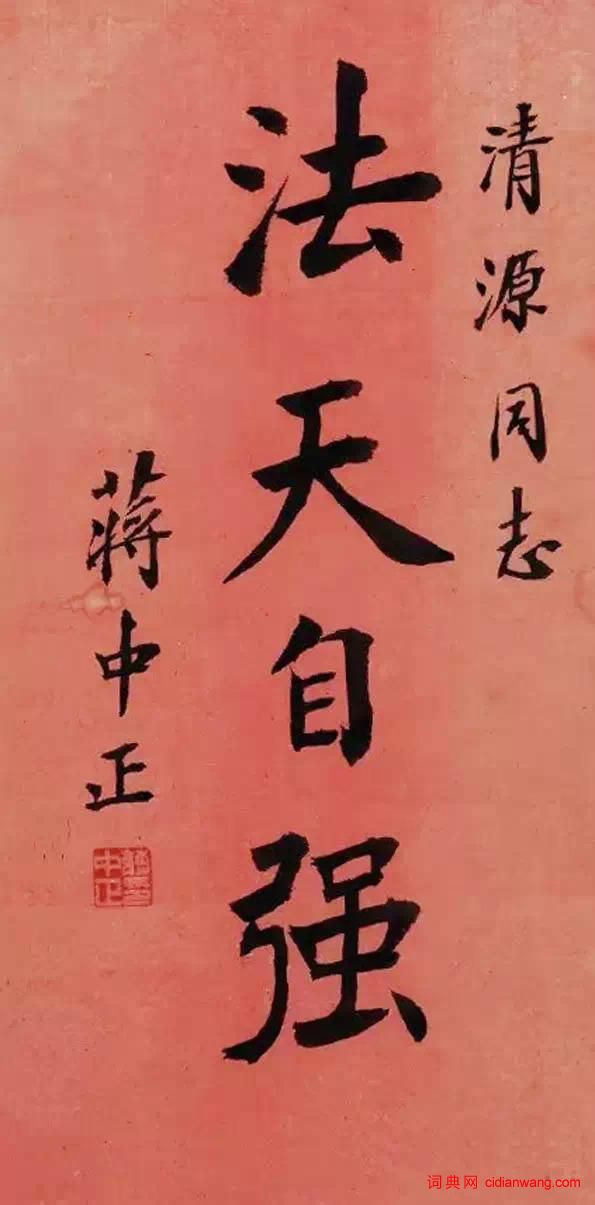 清源同志
法天自强
蒋中正
中正
词典网 cidianwang.com